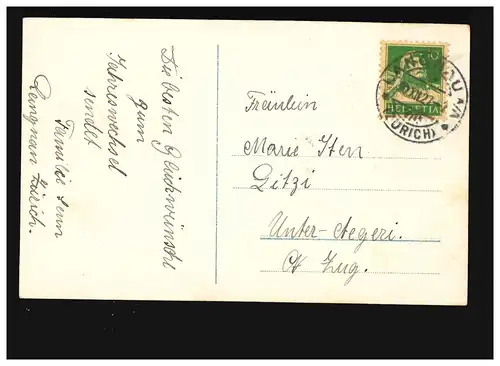 Die besten Glückwünsche
zum
Jahreswechsel
sendet
Familie Senn
Langnau Zürich.
10
HELVETIA
LANGNAU a/A
(ZÜRICH)
Fräulein
Marie Iten
Ditzi
Unter-Aegeri.
Ct Zug.